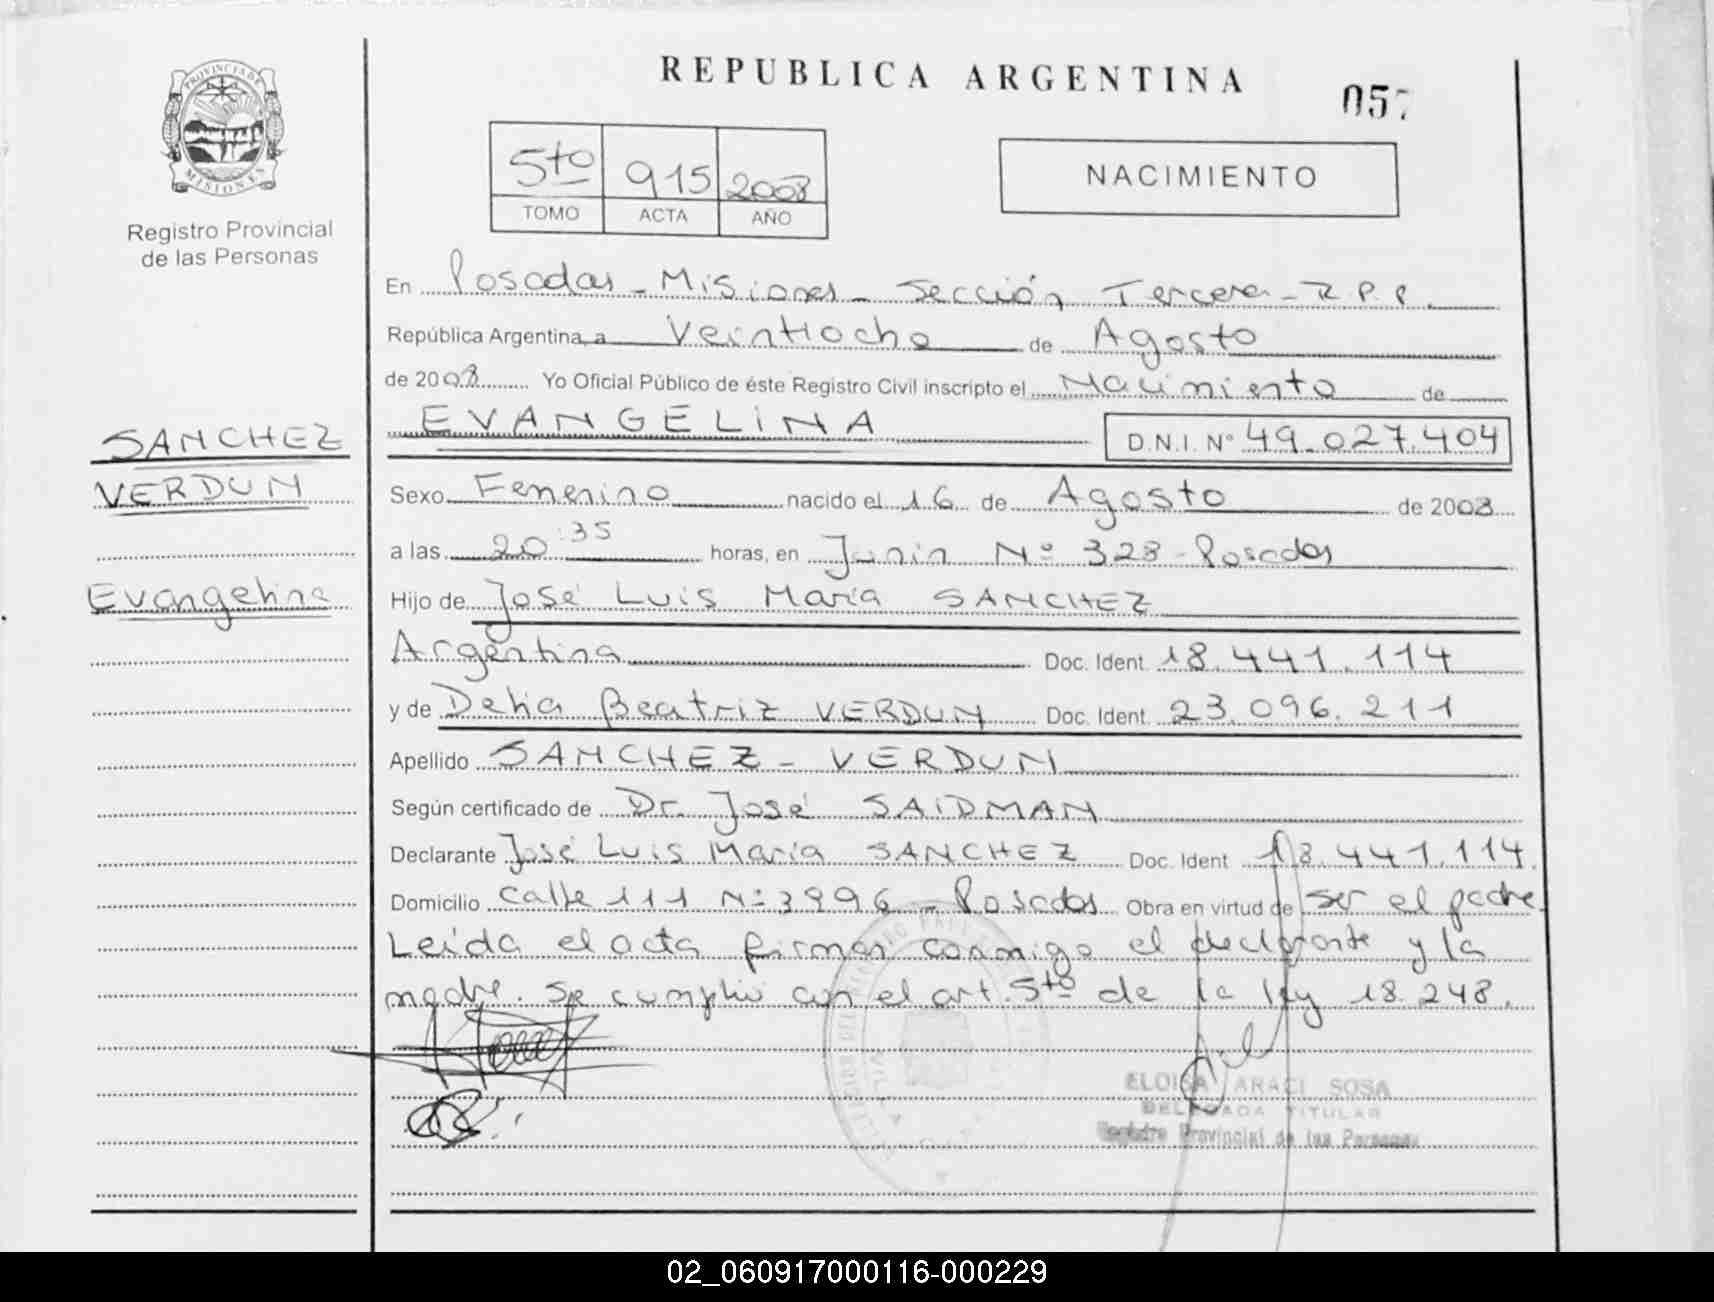 REPUBLICA ARGENTINA
057
PROVINCIA DE
MISIONES
Registro Provincial
de las Personas
5to 915 2008
TOMO ACTA AÑO
NACIMIENTO
En Posadas - Misiones - Sección Tercera - R.P.P.
República Argentina, a Veintiocho de Agosto
de 2008 Yo Oficial Público de éste Registro Civil inscripto el Nacimiento de
EVANGELINA D.N.I. Nº 49.027.404
SANCHEZ
VERDUN
Evangelina
Sexo Femenino nacido el 16 de Agosto de 2008
a las 20:35 horas, en Junin Nº 328 - Posadas
Hijo de José Luis Maria SANCHEZ
Argentina Doc. Ident. 18.441.114
y de Delia Beatriz VERDUN Doc. Ident. 23.096.211
Apellido SANCHEZ - VERDUN
Según certificado de Dr. José SAIDMAN
Declarante José Luis Maria SANCHEZ Doc. Ident 18.441.114.
Domicilio Calle 111 Nº 3896 - Posadas Obra en virtud de ser el padre.
Leida el acta firman conmigo el declarante y la
madre. Se cumplió con el art. 5to de la ley 18.248.
ELOISA ARACI SOSA
DELEGADA TITULAR
Registro Provincial de las Personas
02_060917000116-000229